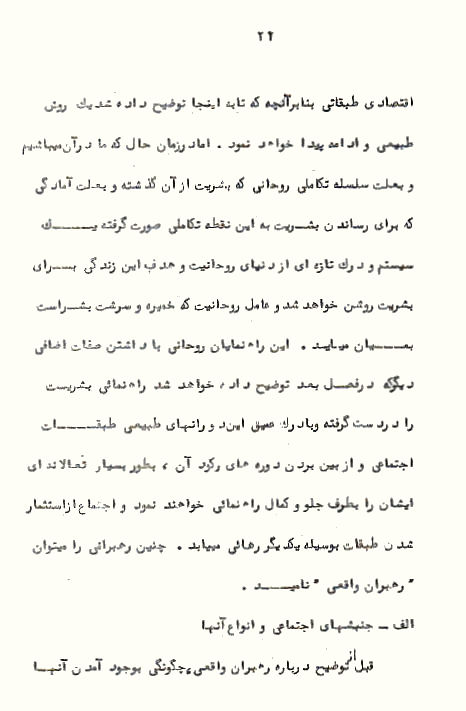 ۲۲
اقتصادی طبقاتی بنابرآنچه که تابه اینجا توضیح داده شدیك روش
طبیعی و ادامه پیدا خواهد نمود . امادرزمان حال که ما درآن میباشیم
و بعلت سلسله تکاملی روحانی که بشریت از آن گذشته و بعلت آمادگی
که برای رساندن بشریت به این نقطه تکاملی صورت گرفته یك
سیستم و درك تازه ای از دنیای روحانیت و هدف این زندگی برای
بشریت روشن خواهد شد و عامل روحانیت که خمیره و سرشت بشراست
بمیان میاید . این راهنمایان روحانی با داشتن صفات اضافی
دیگرکه درفصل بعد توضیح داده خواهد شد راهنمائی بشریت
را دردست گرفته وبادرك عمیق این دورانهای طبیعی طبقات
اجتماعی و از بین بردن دوره های رکود آن ، بطور بسیار فعالانه ای
ایشان را بطرف جلو و کمال راهنمائی خواهند نمود و اجتماع ازاستثمار
شدن طبقات بوسیله یکدیگر رهائی مییابد . چنین رهبرانی را میتوان
" رهبران واقعی " نامید .
الف ـ جنبشهای اجتماعی و انواع آنها
قبل از توضیح درباره رهبران واقعی، چگونگی بوجود آمدن آنها